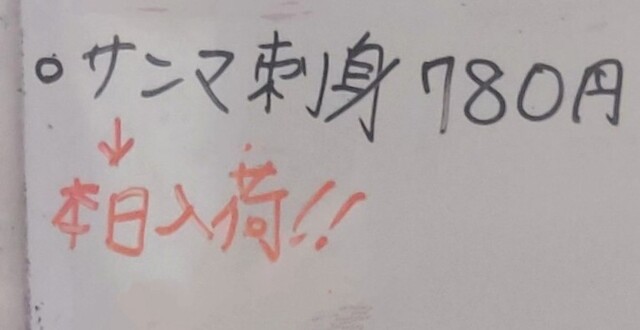 ○サンマ刺身 780円
↓
本日入荷!!